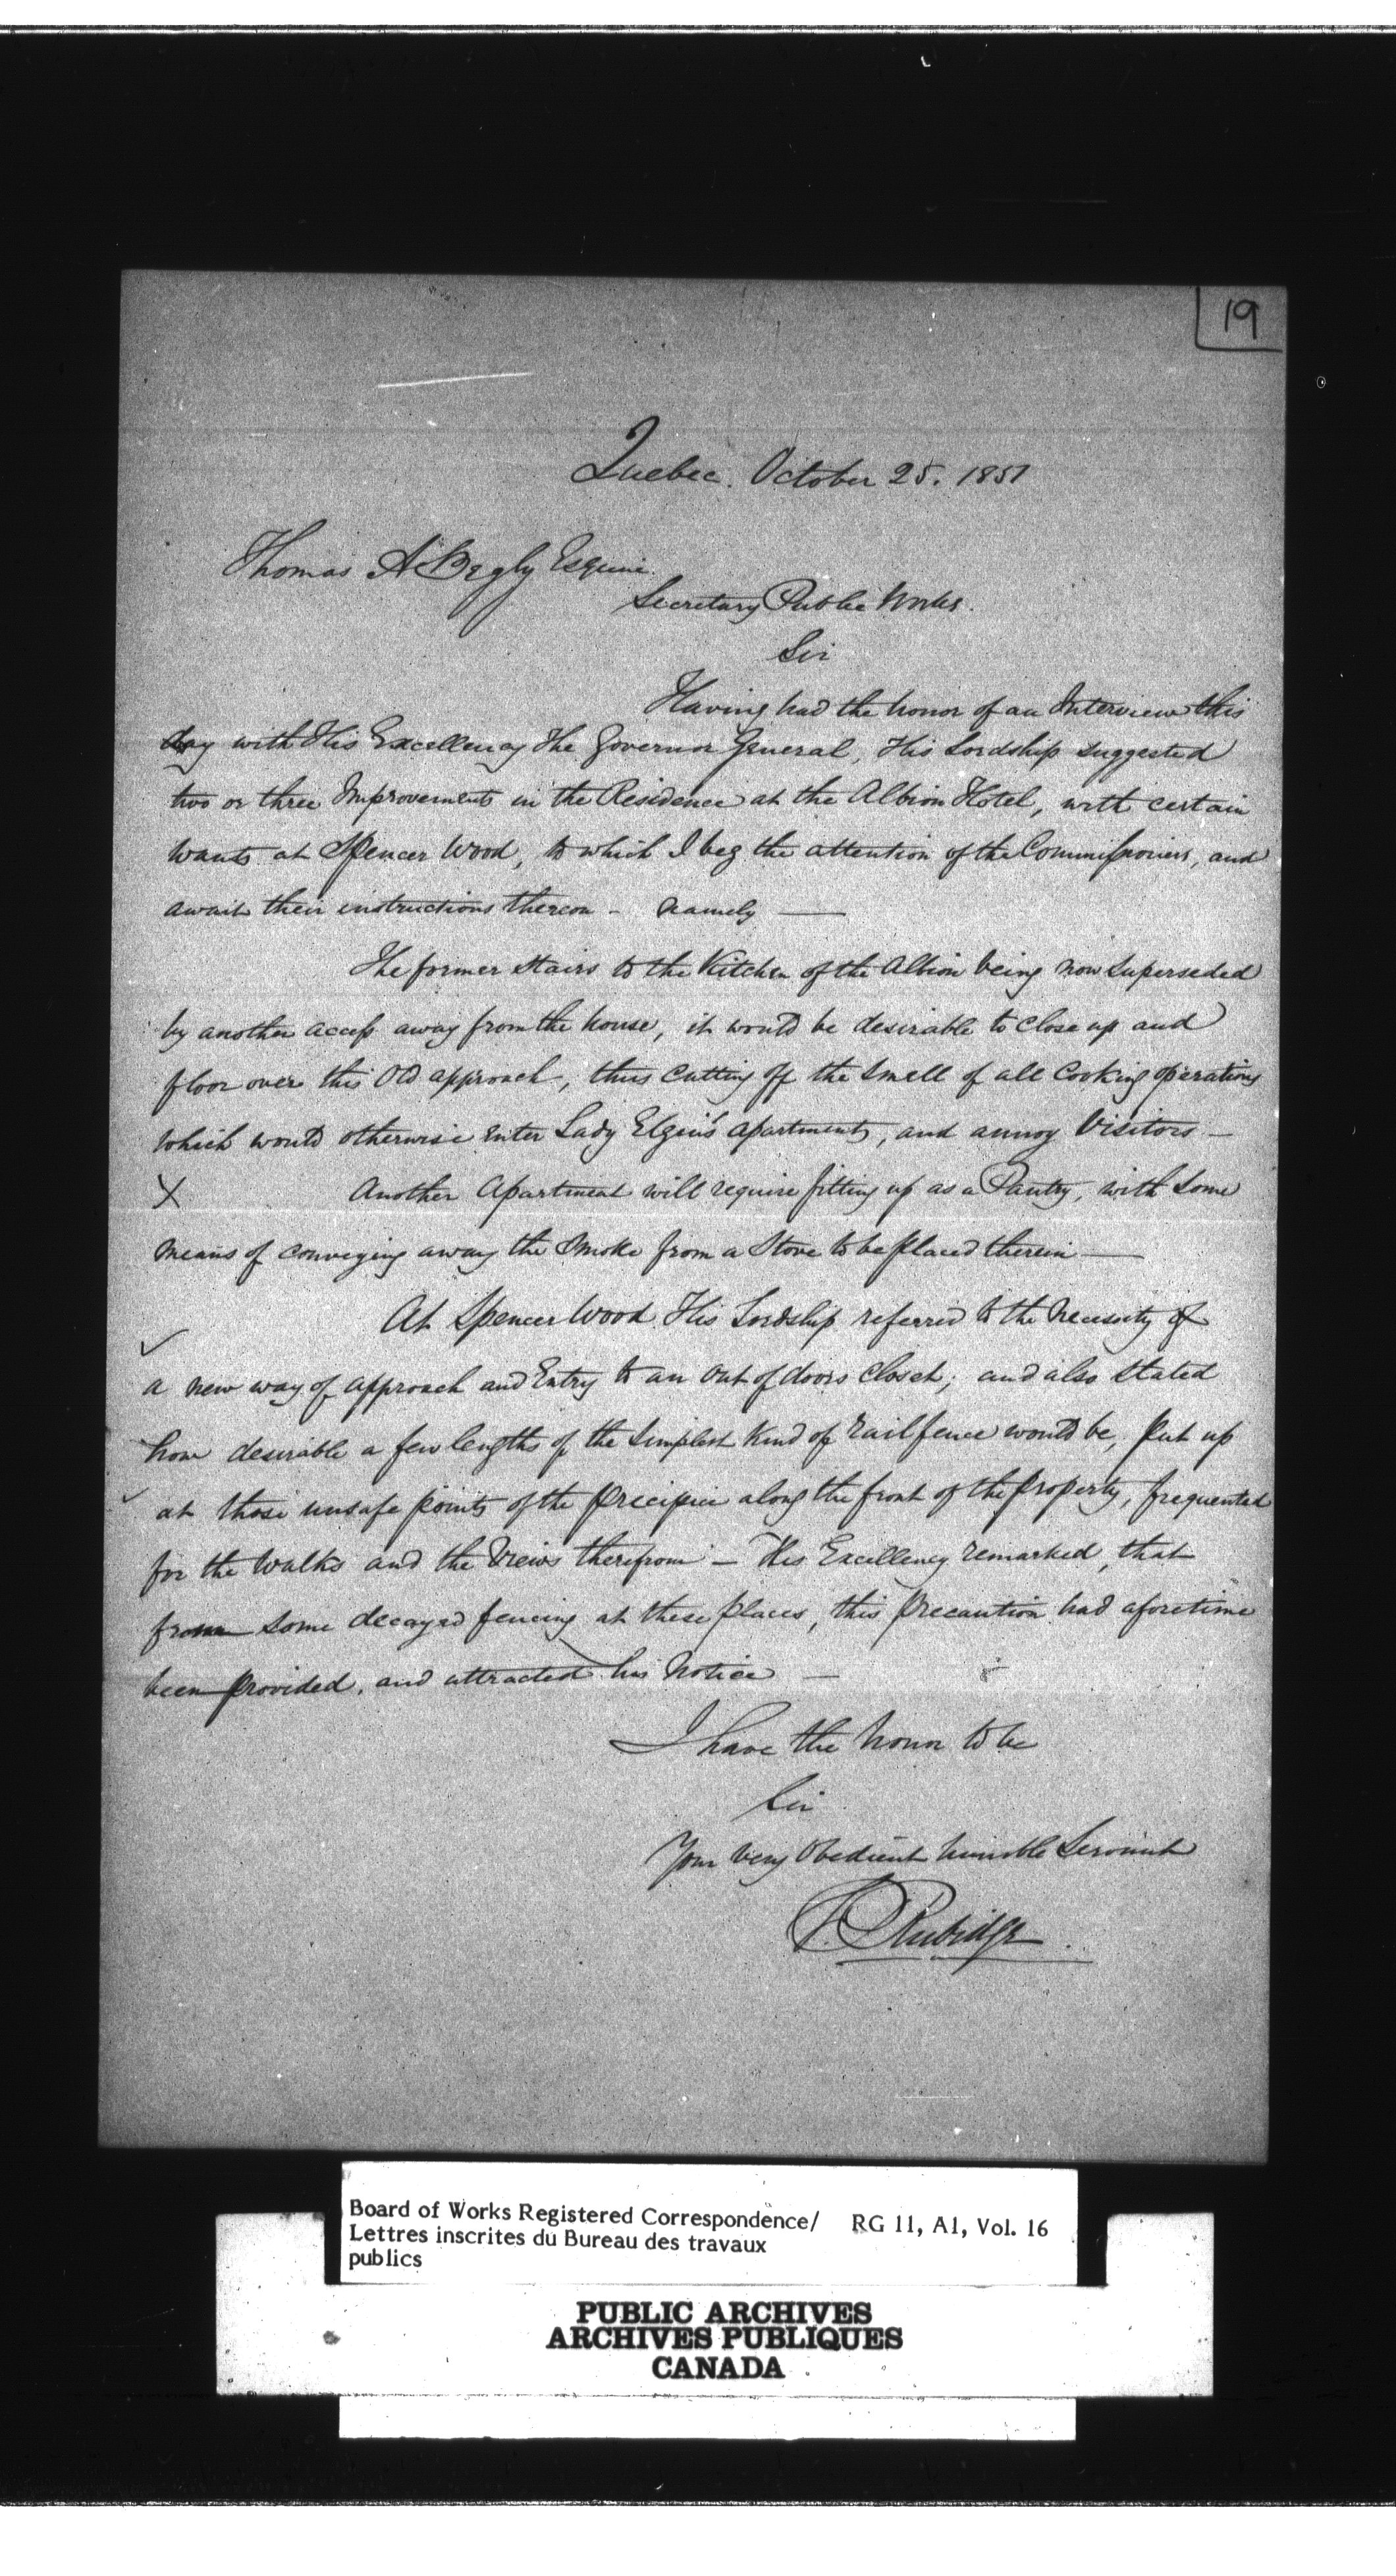 19
Quebec. October 25. 1851
Thomas A Begly Esquire.
Secretary Public Works.
Sir
Having had the honor of an Interview this
day with His Excellency The Governor General, His Lordship suggested
two or three Improvements in the Residence at the Albion Hotel, with certain
wants at Spencer Wood, to which I beg the attention of the Commissioners, and
await their instructions thereon - namely —
The former Stairs to the Kitchen of the Albion being now superseded
by another access away from the house, it would be desirable to close up and
floor over this old approach, thus cutting off the smell of all Cooking operations
which would otherwise enter Lady Elgin's apartments, and annoy Visitors —
X Another Apartment will require fitting up as a Pantry, with some
means of conveying away the smoke from a Stove to be placed therein —
At Spencer Wood His Lordship referred to the necessity of
a new way of approach and Entry to an out of doors closet; and also stated
how desirable a few lengths of the simplest kind of rail fence would be, put up
at those unsafe points of the precipice along the front of the property, frequented
for the walks and the views therefrom — His Excellency remarked, that
from some decayed fencing at these places, this precaution had aforetime
been provided, and attracted his notice —
I have the honor to be
Sir
Your very Obedient humble Servant
F. P. Rubidge
Board of Works Registered Correspondence/ RG 11, A1, Vol. 16
Lettres inscrites du Bureau des travaux
publics
PUBLIC ARCHIVES
ARCHIVES PUBLIQUES
CANADA